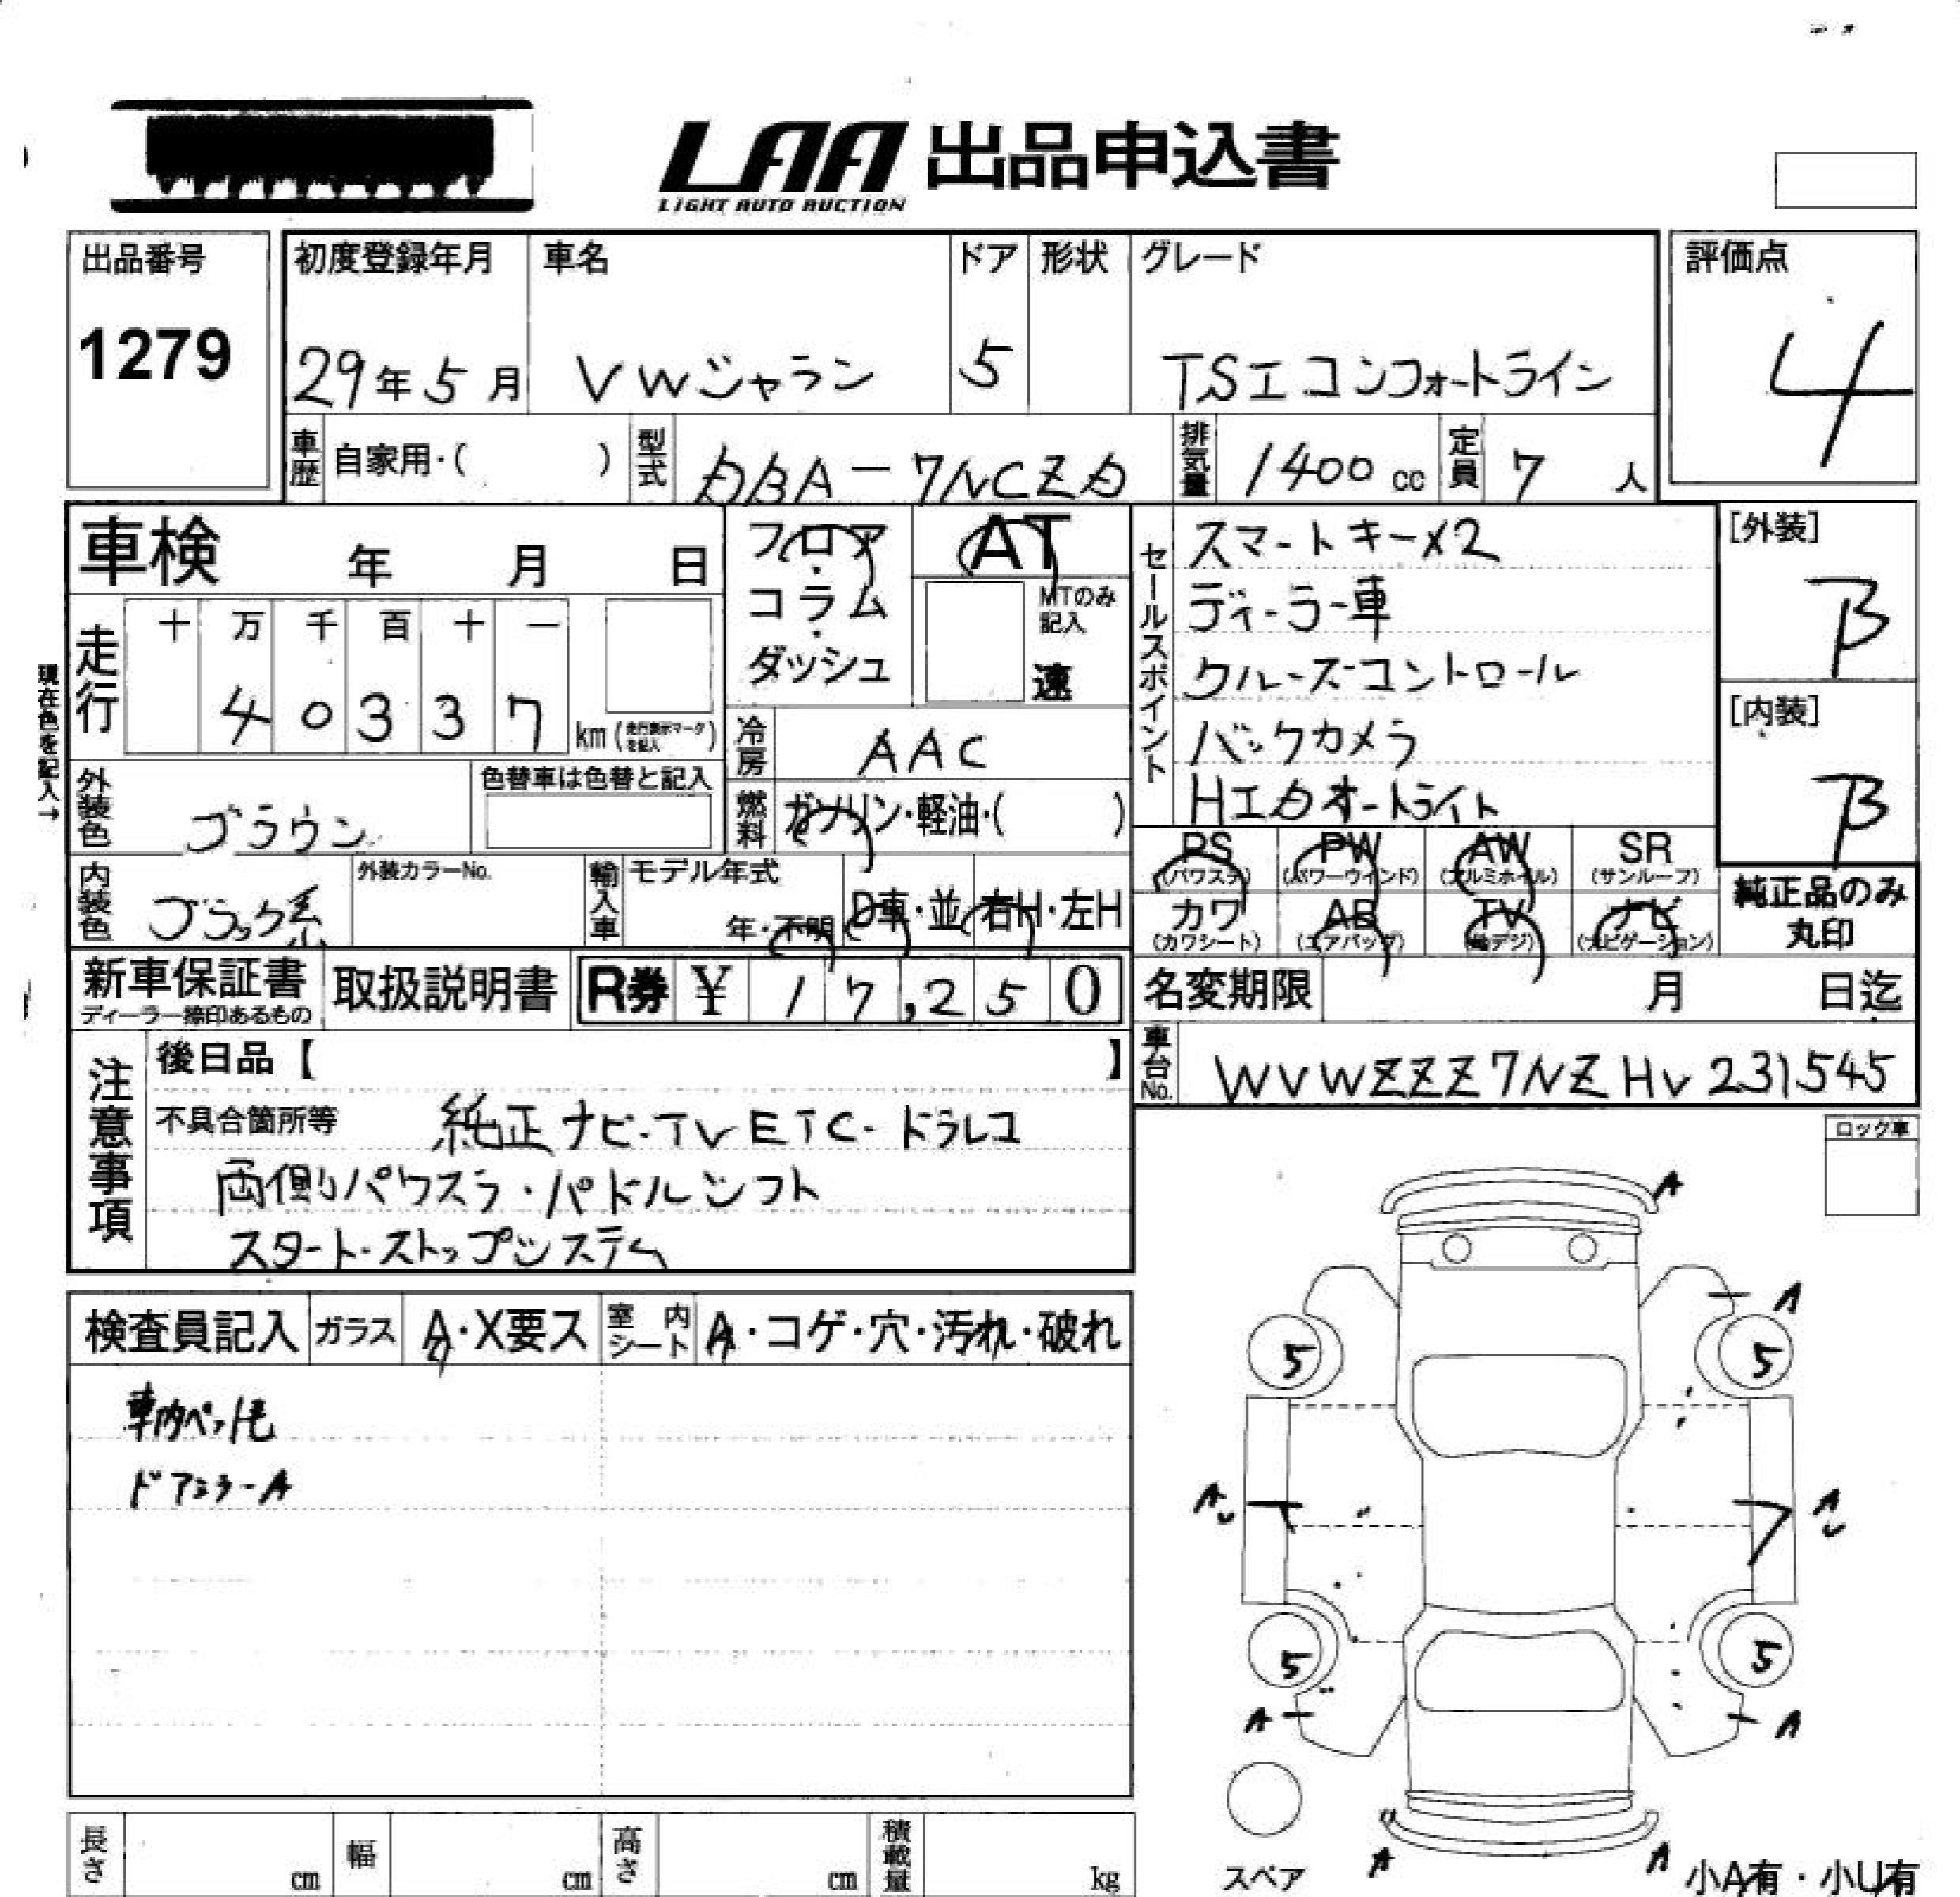 LAA 出品申込書
LIGHT AUTO AUCTION
出品番号
1279
初度登録年月
29年5月
車名
VWシャラン
ドア
5
形状
グレード
TSIコンフォートライン
評価点
4
車歴
自家用・( )
型式
DBA-7NCZD
排気量
1400cc
定員
7人
車検 年 月 日
走行
十 万 千 百 十 一
4 0 3 3 7
km(走行表示マークを記入)
現在色を記入→
フロア・コラム・ダッシュ
AT
MTのみ記入
速
セールスポイント
スマートキー×2
ディーラー車
クルーズコントロール
バックカメラ
HIDオートライト
[外装]
B
[内装]
B
冷房
AAC
燃料
ガソリン・軽油・( )
外装色
ブラウン
色替車は色替と記入
内装色
ブラック系
外装カラーNo.
輸入車
モデル年式
年・不明
D車・並
右H・左H
PS
(パワステ)
PW
(パワーウインド)
AW
(アルミホイル)
SR
(サンルーフ)
カワ
(カワシート)
AB
(エアバッグ)
TV
(地デジ)
ナビ
(ナビゲーション)
純正品のみ
丸印
新車保証書
ディーラー捺印あるもの
取扱説明書
R券 ¥ 17,250
名変期限 月 日迄
車台No.
WVWZZZ7NZHV231545
注意事項
後日品【 】
不具合箇所等 純正ナビ・TV ETC・ドラレコ
両側パワスラ・パドルシフト
スタート・ストップシステム
ロック車
検査員記入
ガラス
A・X要ス
室内シート
A・コゲ・穴・汚れ・破れ
車内ペット毛
ドアミラーA
A
A
5
5
A
A
5
5
A
A
A
A
スペア
小A有・小U有
長さ
cm
幅
cm
高さ
cm
積載量
kg